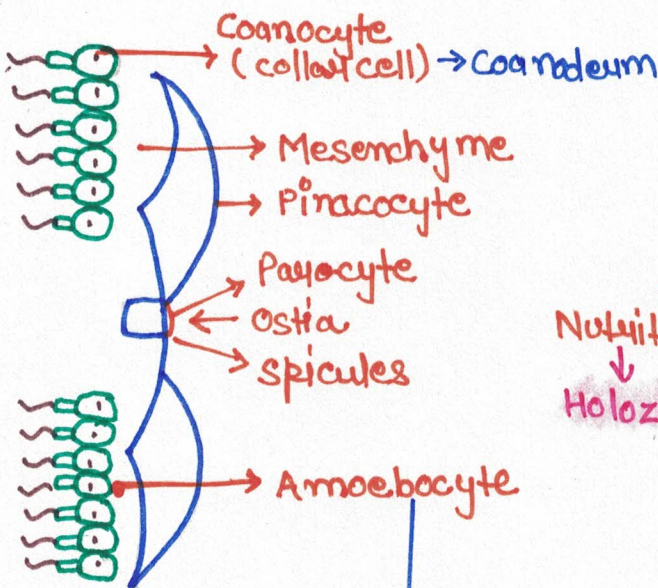 Coanocyte
(collar cell) → Coanodeum
Mesenchyme
Pinacocyte
Payocyte
Ostia
Spicules
Nutrit
Holoz
Amoebocyte